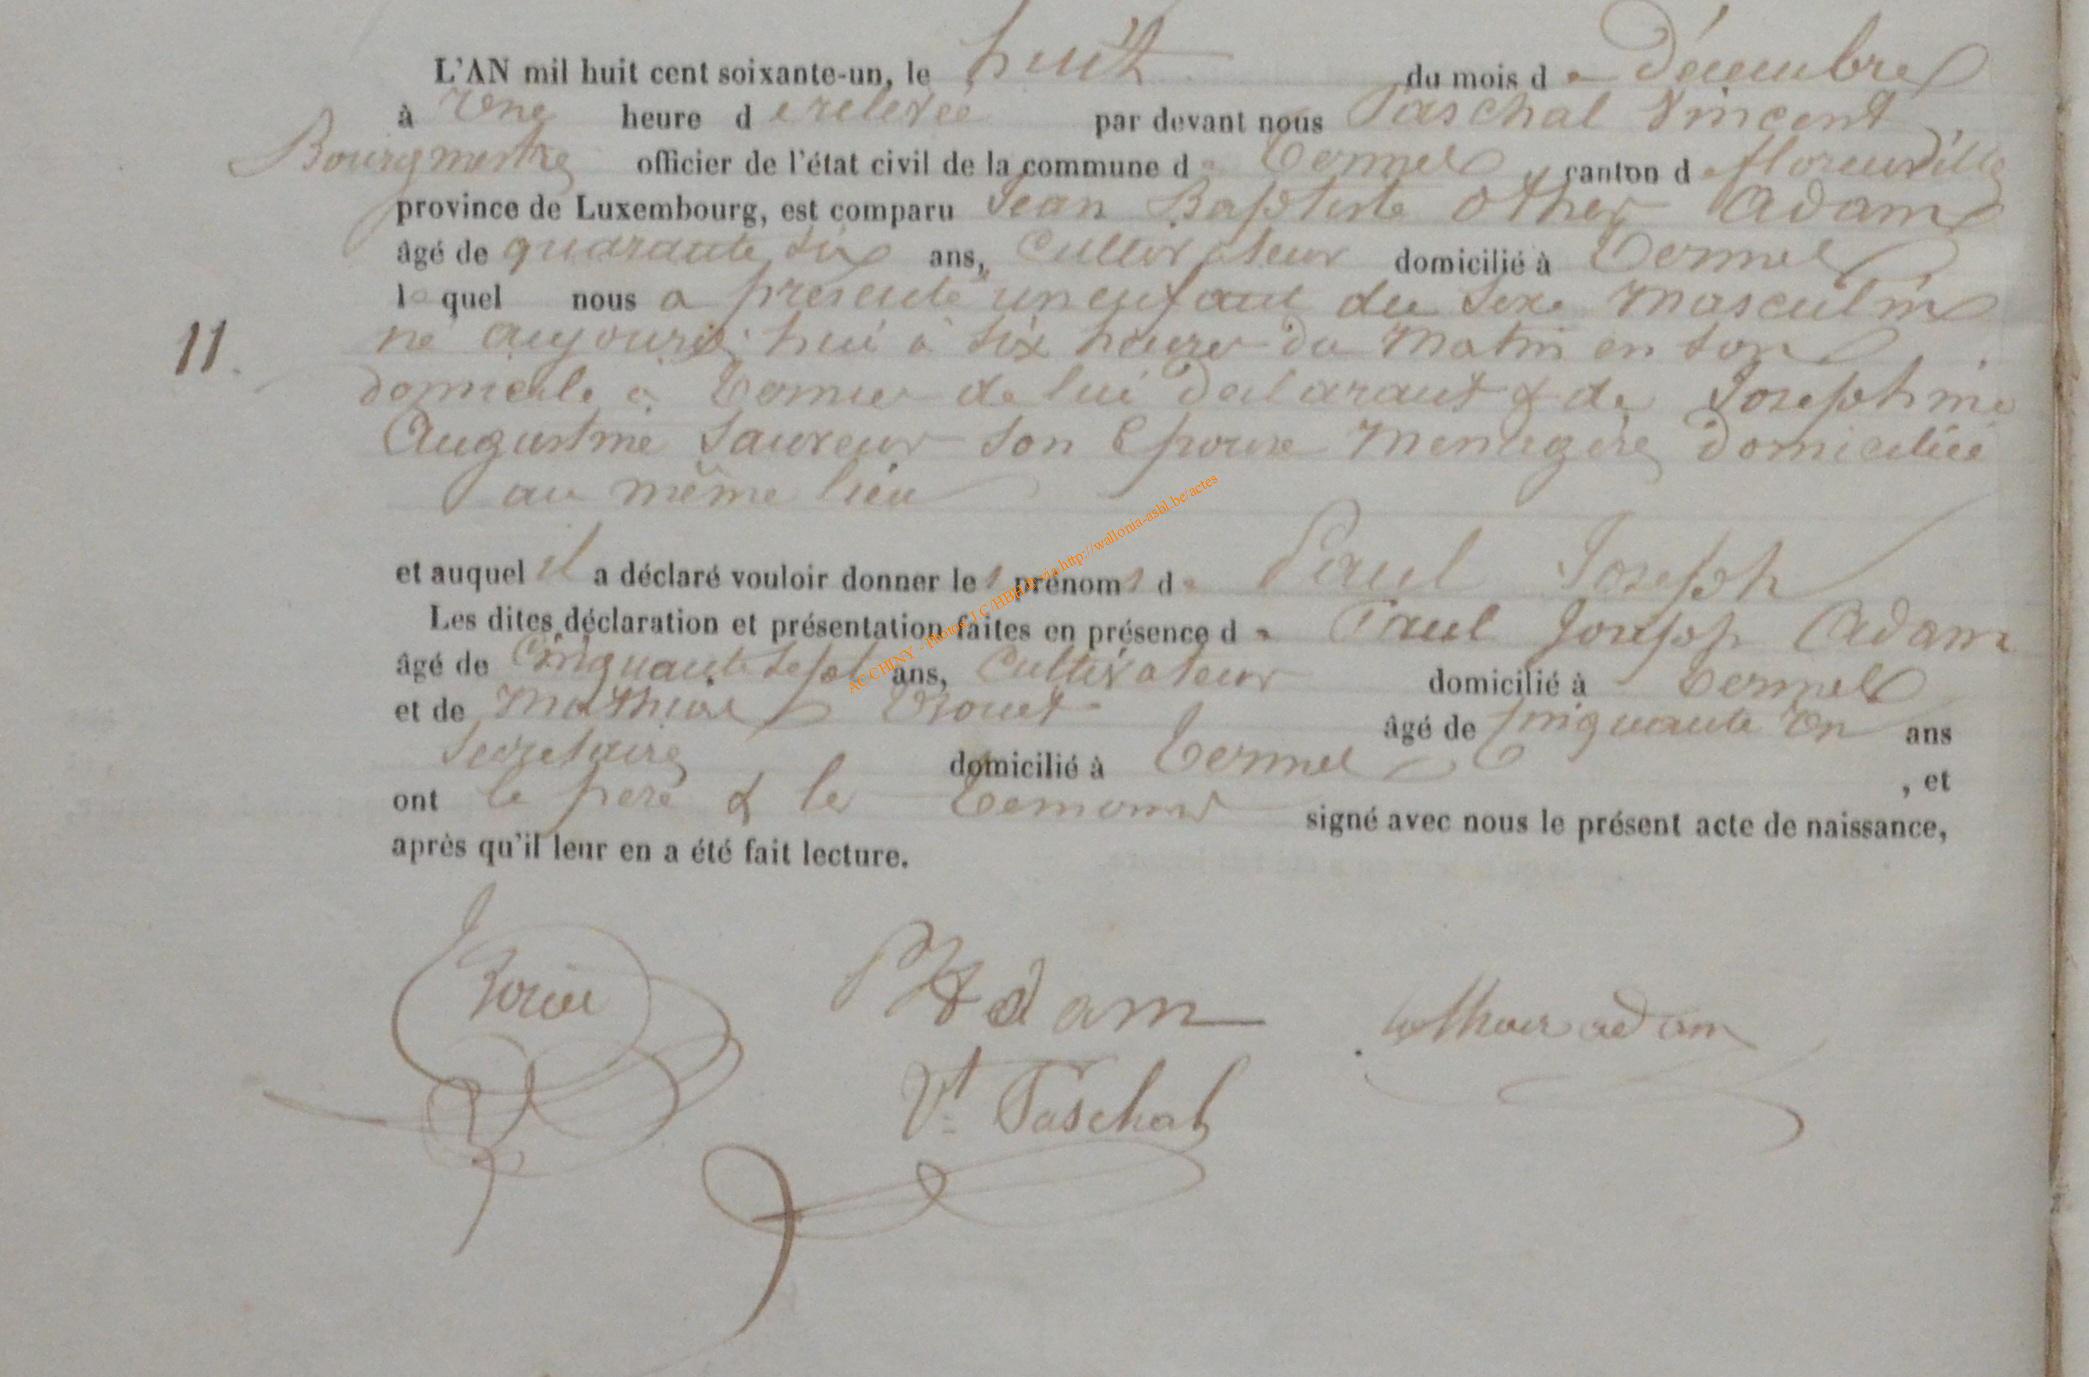 L'AN mil huit cent soixante-un, le huit du mois de Décembre
à Une heure de relevée par devant nous Paschal Vincent
Bourgmestre officier de l'état civil de la commune de Termes, canton de florenville
province de Luxembourg, est comparu Jean Baptiste Other Adam
âgé de quarante six ans, Cultivateur domicilié à Termes
lequel nous a présenté un enfant du sexe masculin
né aujourd'hui à six heures du matin en son
domicile à Termes de lui déclarant & de Josephine
Augustine Sauveur son Epouse Menagère domiciliée
au même lieu
11.
et auquel il a déclaré vouloir donner les prénoms de Paul Joseph
Les dites déclaration et présentation faites en présence de Paul Joseph Adam
âgé de Cinquante sept ans, Cultivateur domicilié à Termes
et de Mathias âgé de Cinquante Un ans
Secretaire domicilié à Termes , et
ont le père & les temoins signé avec nous le présent acte de naissance,
après qu'il leur en a été fait lecture.
P J Adam
adam
Vt Paschal
ACCHINY - Photos LC/HBH/ via http://wallonia-asbl.be/actes